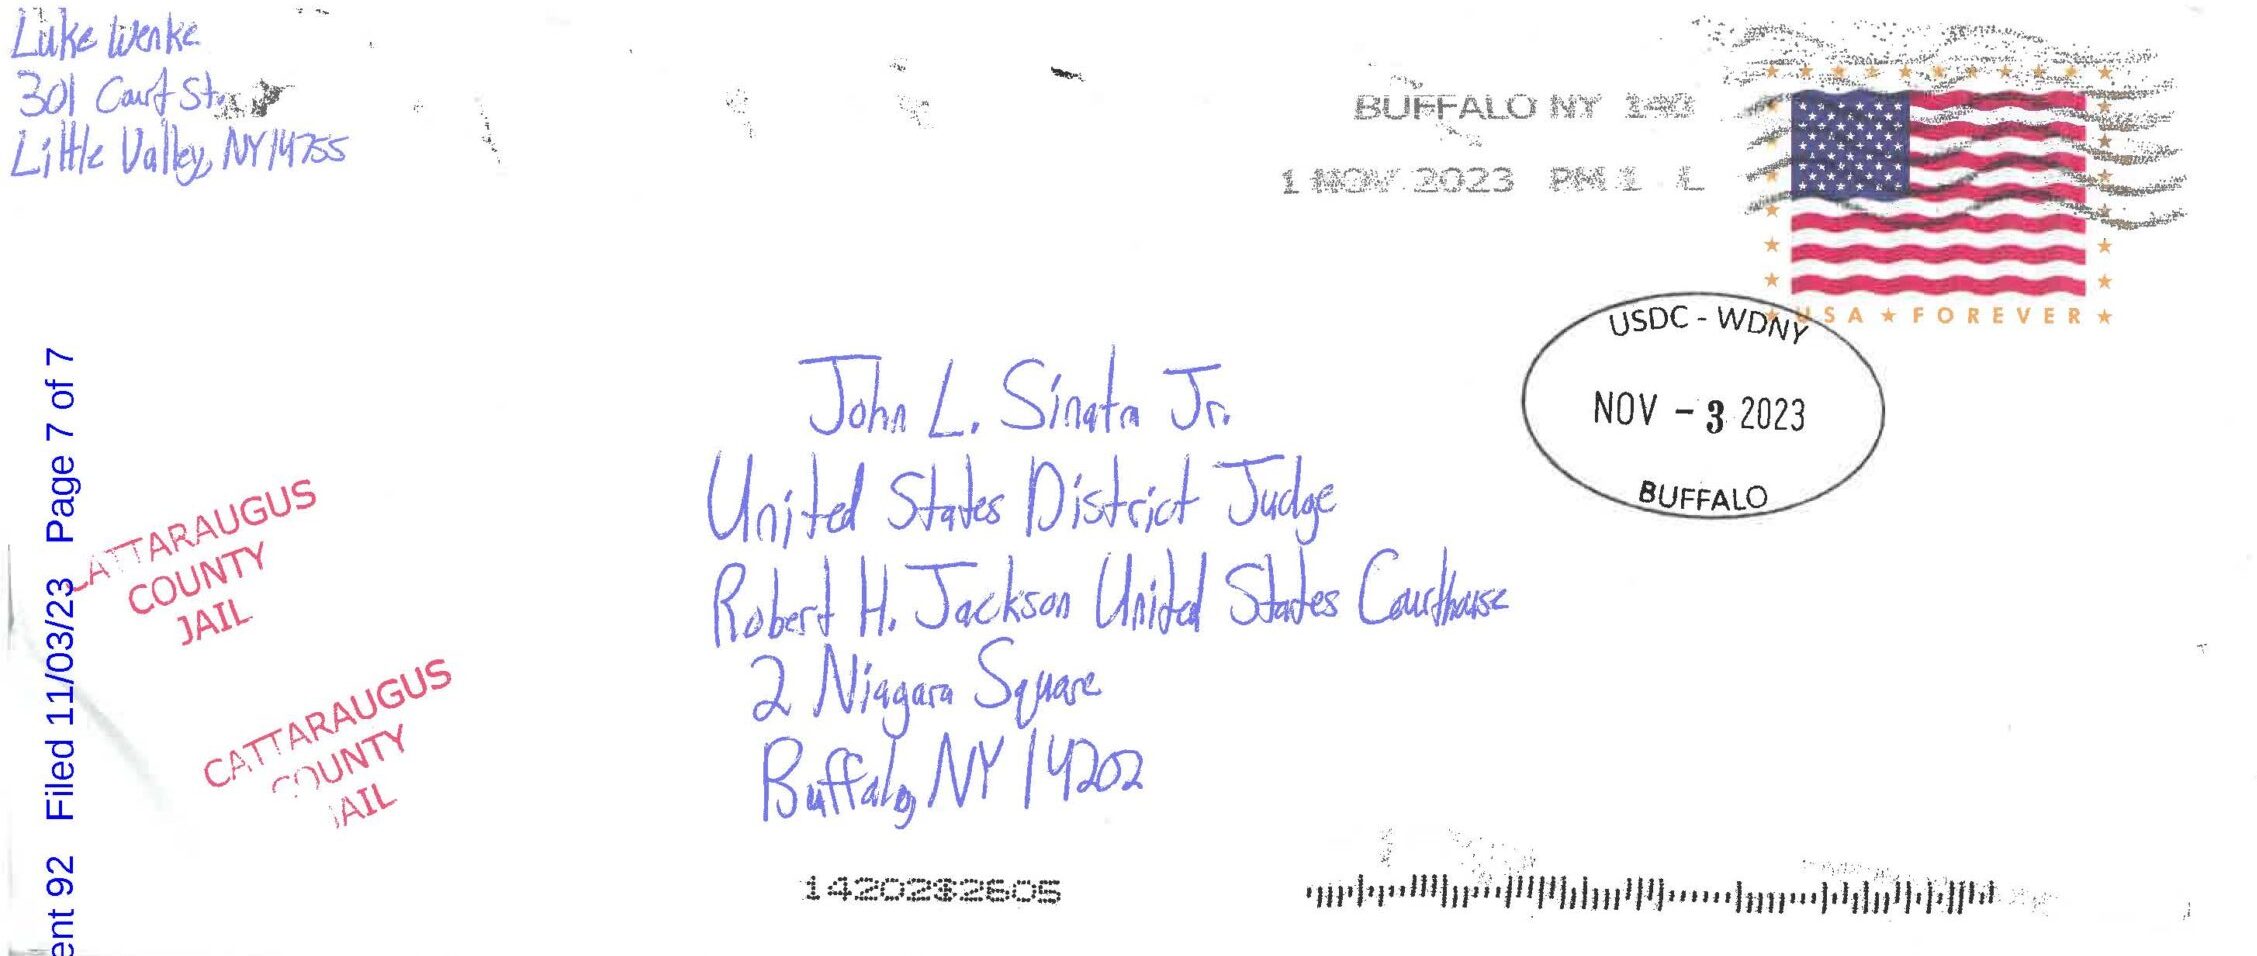 Luke Wenke
301 Court St.
Little Valley, NY 14755
BUFFALO NY 140
1 NOV 2023 PM 1 L
USA ★ FOREVER
USDC - WDNY
NOV - 3 2023
BUFFALO
John L. Sinatra Jr.
United States District Judge
Robert H. Jackson United States Courthouse
2 Niagara Square
Buffalo, NY 14202
ent 92 Filed 11/03/23 Page 7 of 7
CATTARAUGUS
COUNTY
JAIL
CATTARAUGUS
COUNTY
JAIL